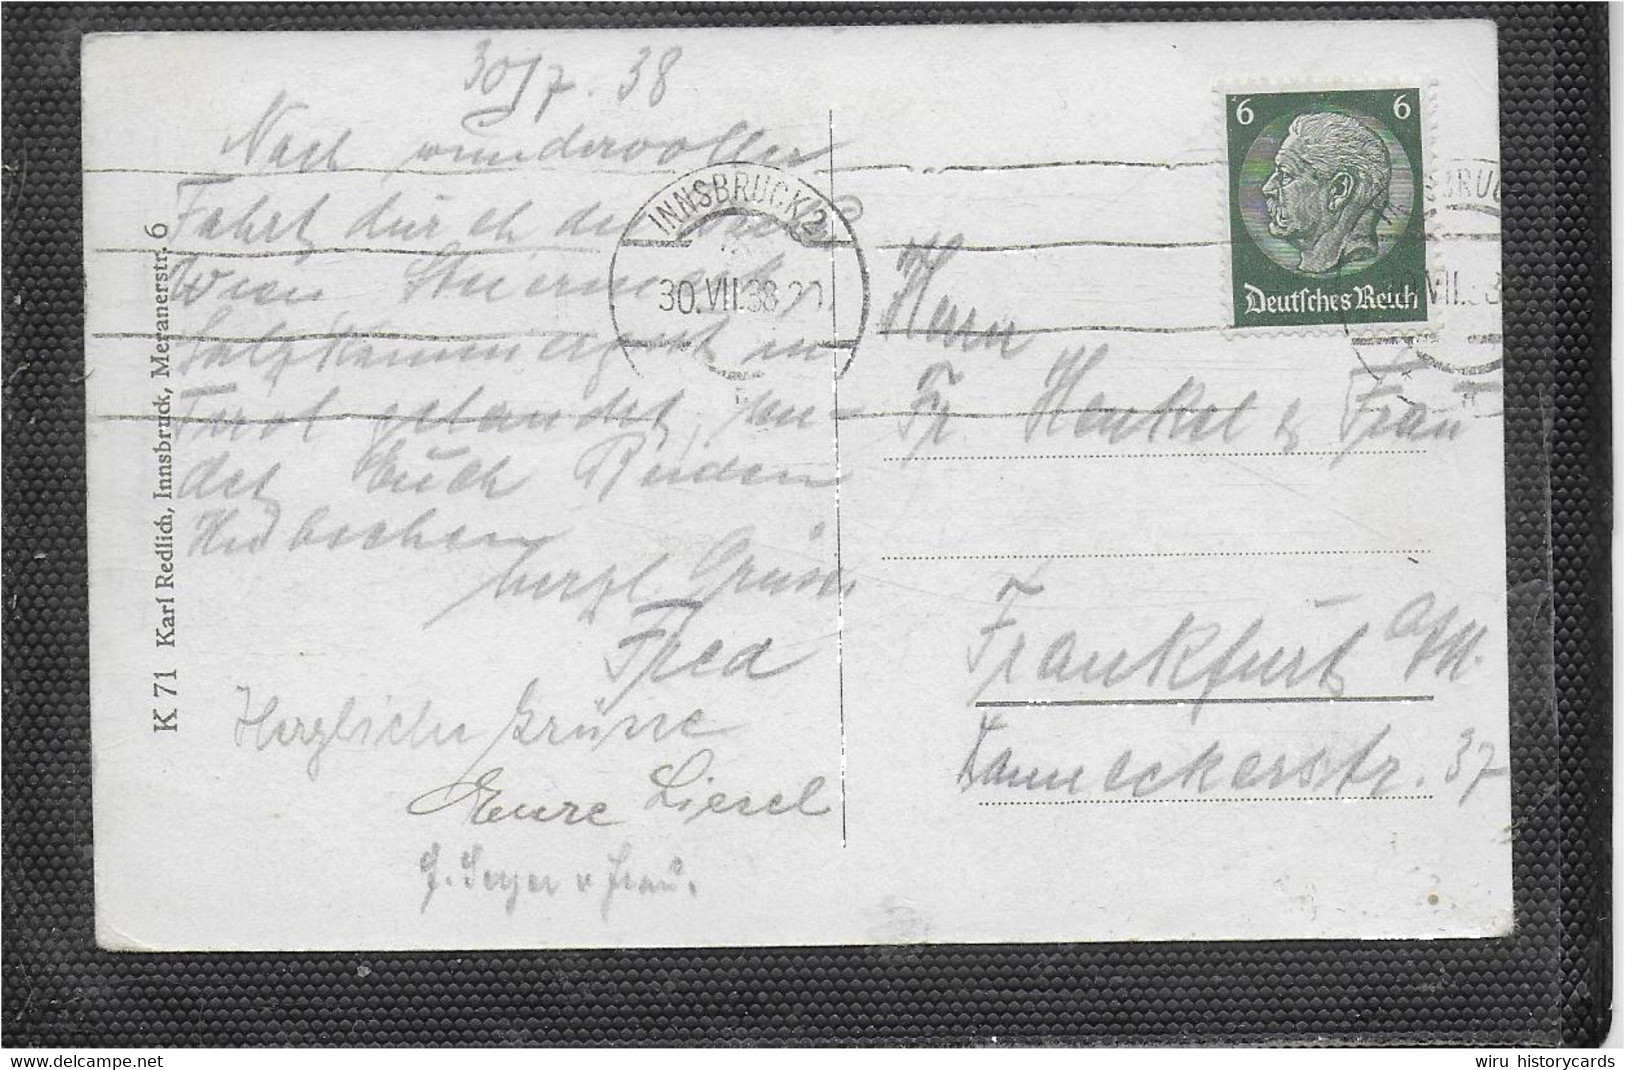 30/7. 38
Nach wundervoller
Fahrt durch
Wien Steiermark,
Salzkammergut in
Tirol gelandet, sen-
det Euch Beiden
herzl Grüsse
Fred
Herzliche Grüsse
Eure Liesel
u Frau.
K 71 Karl Redlich, Innsbruck, Meranerstr. 6
INNSBRUCK 2
30.VII.38.20
6 6
Deutsches Reich
Herrn
Fr. Henkel & Frau
Frankfurt a/M.
Danneckerstr. 37
delcampe.net
wiru historycards